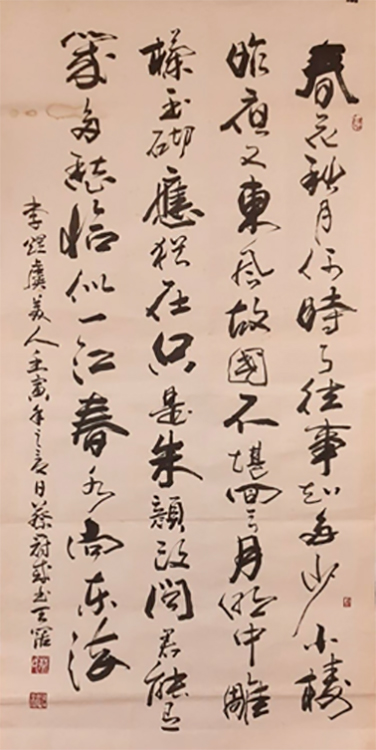 春花秋月何時了往事知多少小樓
昨夜又東風故國不堪回首月明中雕
欄玉砌應猶在只是朱顏改問君能有
幾多愁恰似一江春水向东流
李煜虞美人壬寅年之日蔡书